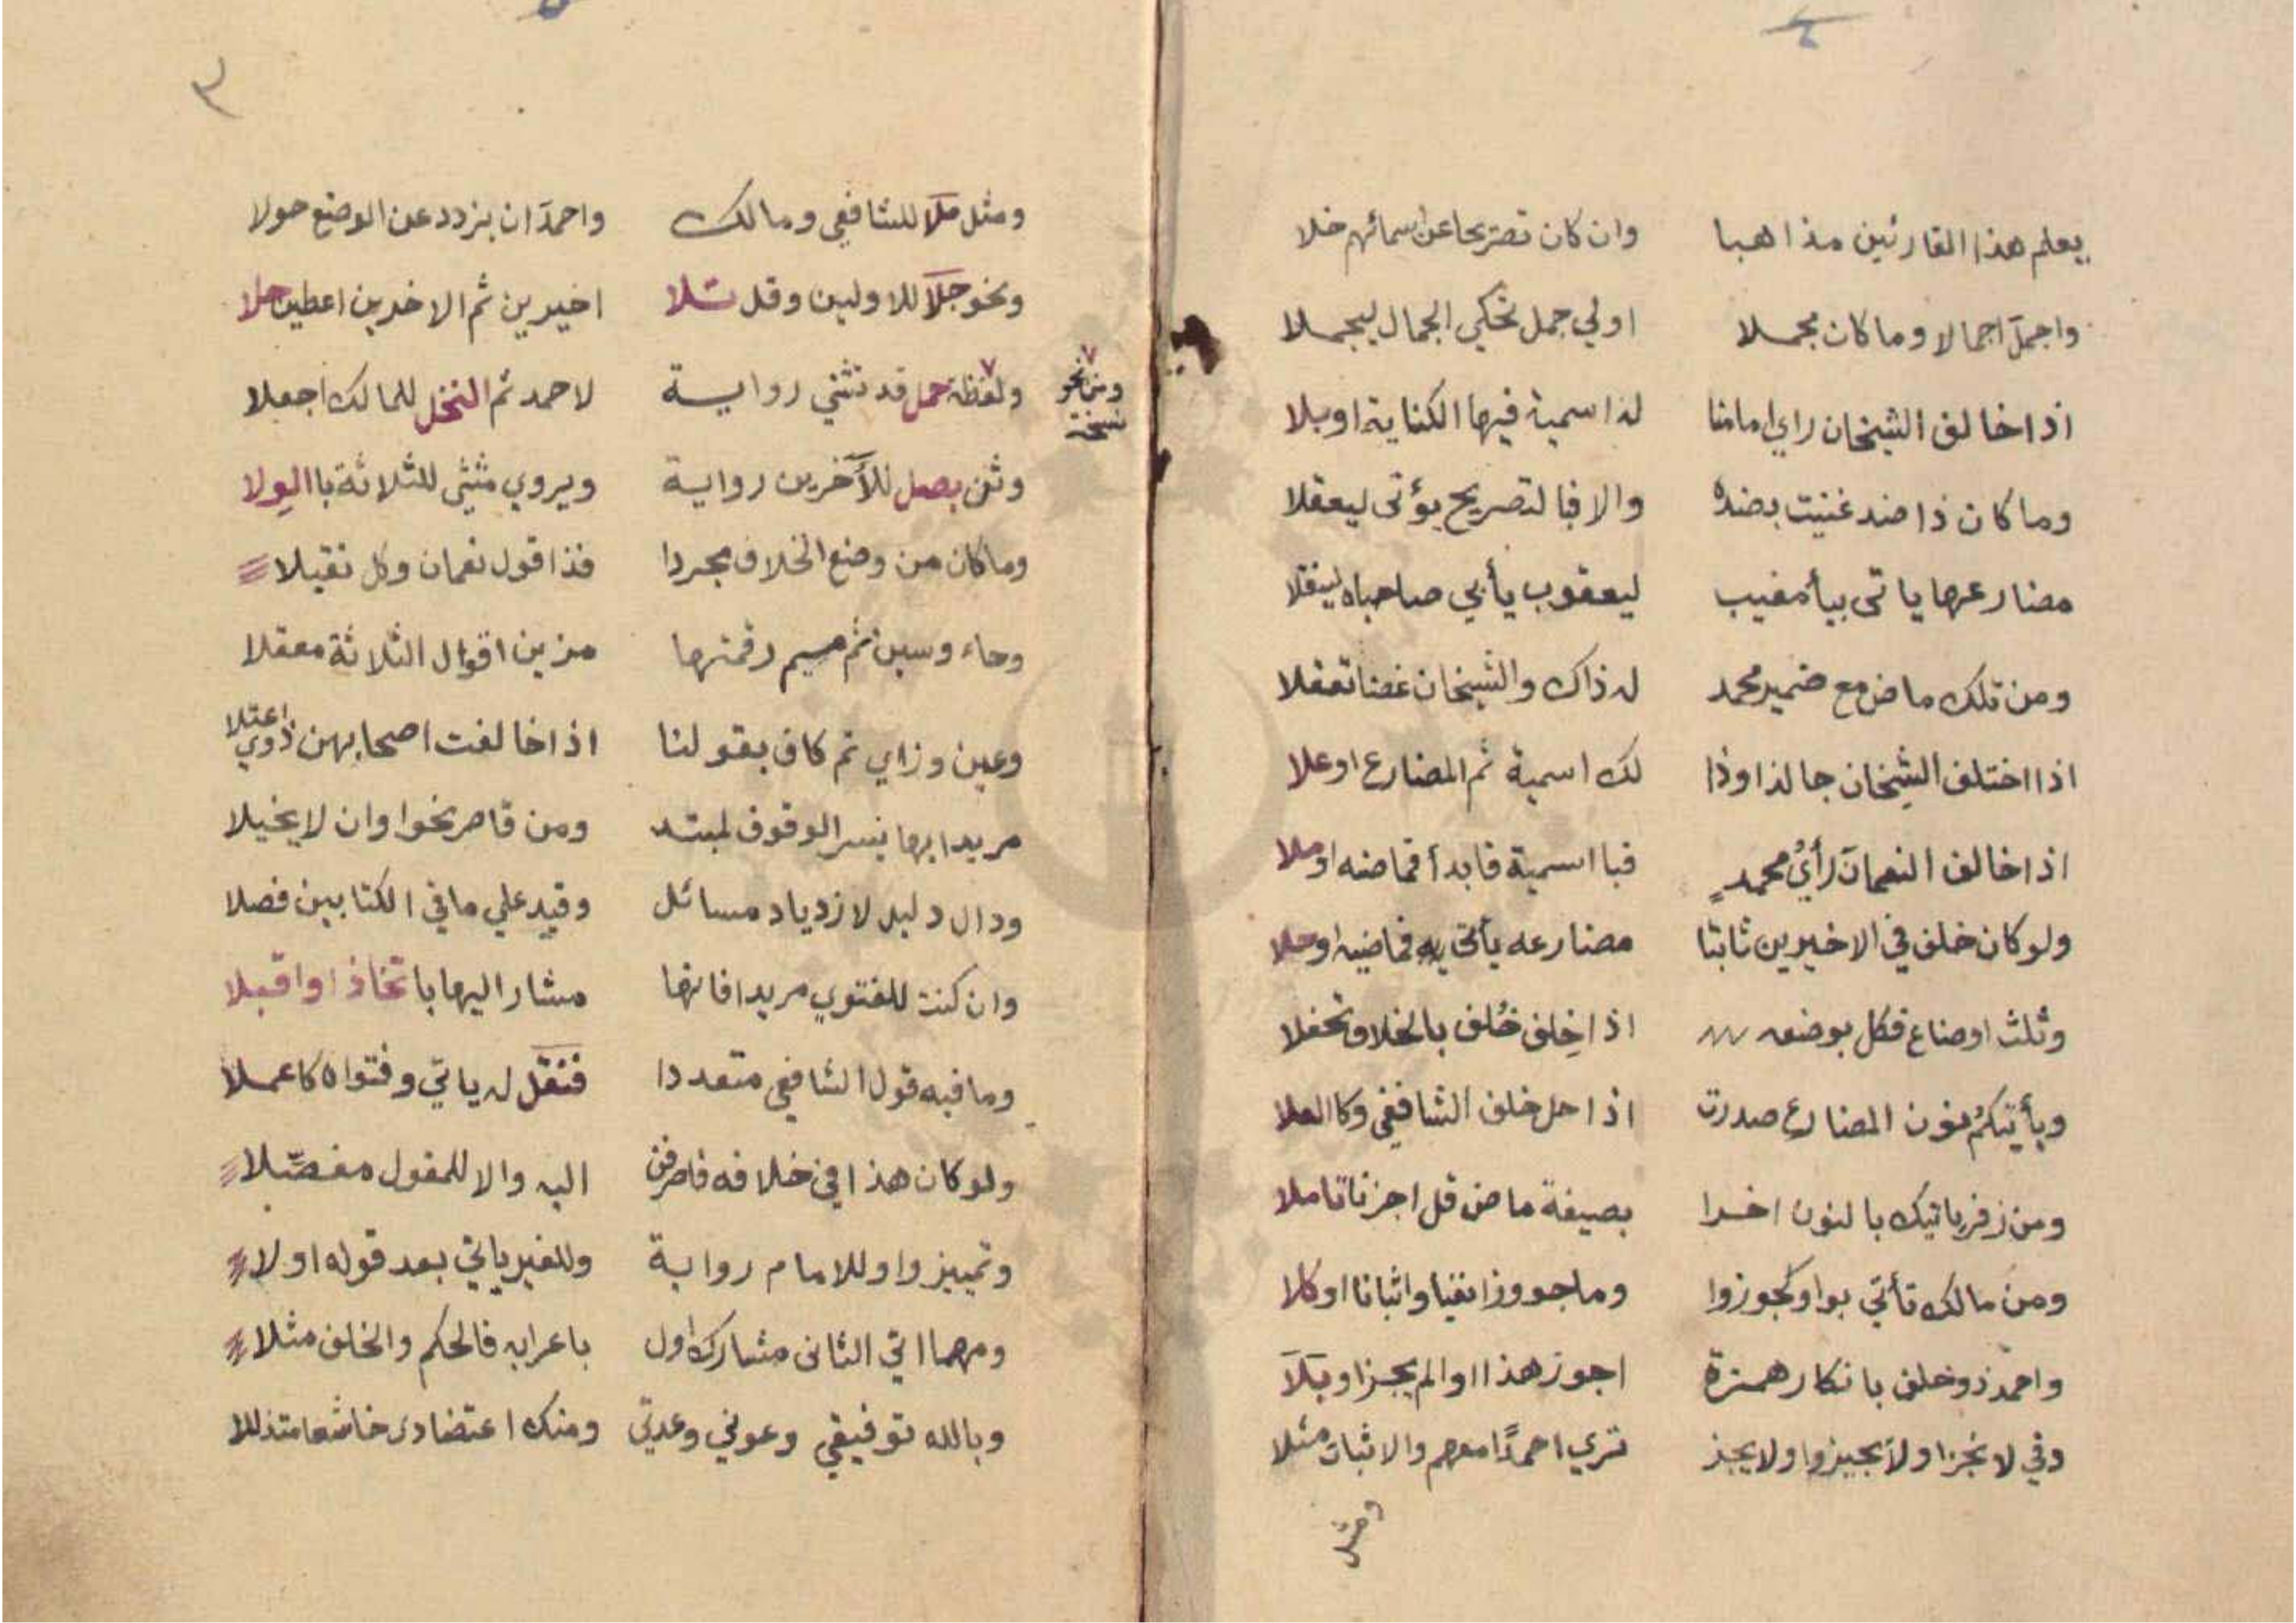 يعلم هذا القارئين مذاهبا وان كان تصريحا عن اسمائهم خلا
واجمل اجمالا وما كان مجملا اولي جمل تحكي الجمال ليجملا
اذا خالف الشيخان راي امامنا له اسمية فيها الكناية اوبلا
وما كان ذا ضد غنيت بضده والا فبالتصريح يؤتى ليعقلا
مضارعها ياتى بيأ مغيب ليعقوب يأبي صاحباه لينقلا
ومن تلك ماض مع ضمير محمد له ذاك والشيخان غضنا تعقلا
اذا اختلف الشيخان جا لذا وذا لك اسمية ثم المضارع اوعلا
اذا خالف النعمان رأي محمد فبا اسمية فابدأ فماضنه اوملا
ولو كان خلف في الاخيرين ثابتا مضارعه يأتي به فماضيه اوحلا
وثلث اوضاع فكل بوضعه اذا خلف خلف بالخلاف تحفلا
ويأتيكم بنون المضارع صدرت اذا حل خلف الشافعي وكا العلا
ومن زفر ياتيك بالنون اخرا بصيغة ماض قل اجزنا تاملا
ومن مالك تأتي بواو كجوزوا وما جوزوا نفيا واثباتا اوكلا
واحمد ذوخلف بانكار همزة اجوز هذا اوالم يجز اوبلا
وفي لا نجز اولا يجيزوا ولا يجز تري احمدا معهم والاثبات مثلا
ومثل
٣
ومثل ملا للشافعي ومالك واحمد ان يزدد عن الوضع حولا
ونحو جلا للاولين وقل تلا اخيرين ثم الاخرين اعطين حلا
ولفظة حمل قد تثني رواية لاحمد ثم النخل للمالك اجعلا
ومن نحو
نسخة
وثن بصل للآخرين رواية ويروي مثنى للثلاثة باالولا
وما كان من وضع الخلاف مجردا فذا قول نعمان وكل تقيلا
وحاء وسين ثم ميم رقمتها مزين اقوال الثلاثة معقلا
وعين وزاي ثم كاف بقولنا اذا خالفت اصحابهن ذوي اعتلا
مريدا بها يسر الوقوف لمبتد ومن قاصر نحوا وان لا يخيلا
ودال دليل لازدياد مسائل وقيد علي ما في الكتابين فصلا
وان كنت للفتوي مريدا فانها مشار اليها با تخاذ اواقبلا
وما فيه قول الشافعي متعددا فنقل له ياتي وفتواه كاعملا
ولو كان هذا في خلافه فاصرفن اليه والا للمقول مفصلا
وتمييز واو للامام رواية وللغير ياتي بعد قوله اولا
ومهما اتي الثانى مشارك اول باعرابه فالحكم والخلف مثلا
وبالله توفيقي وعوني وعدتي ومنك اعتضادى خاشعا متذللا